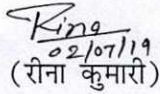 Rina
02/07/19
(रीना कुमारी)